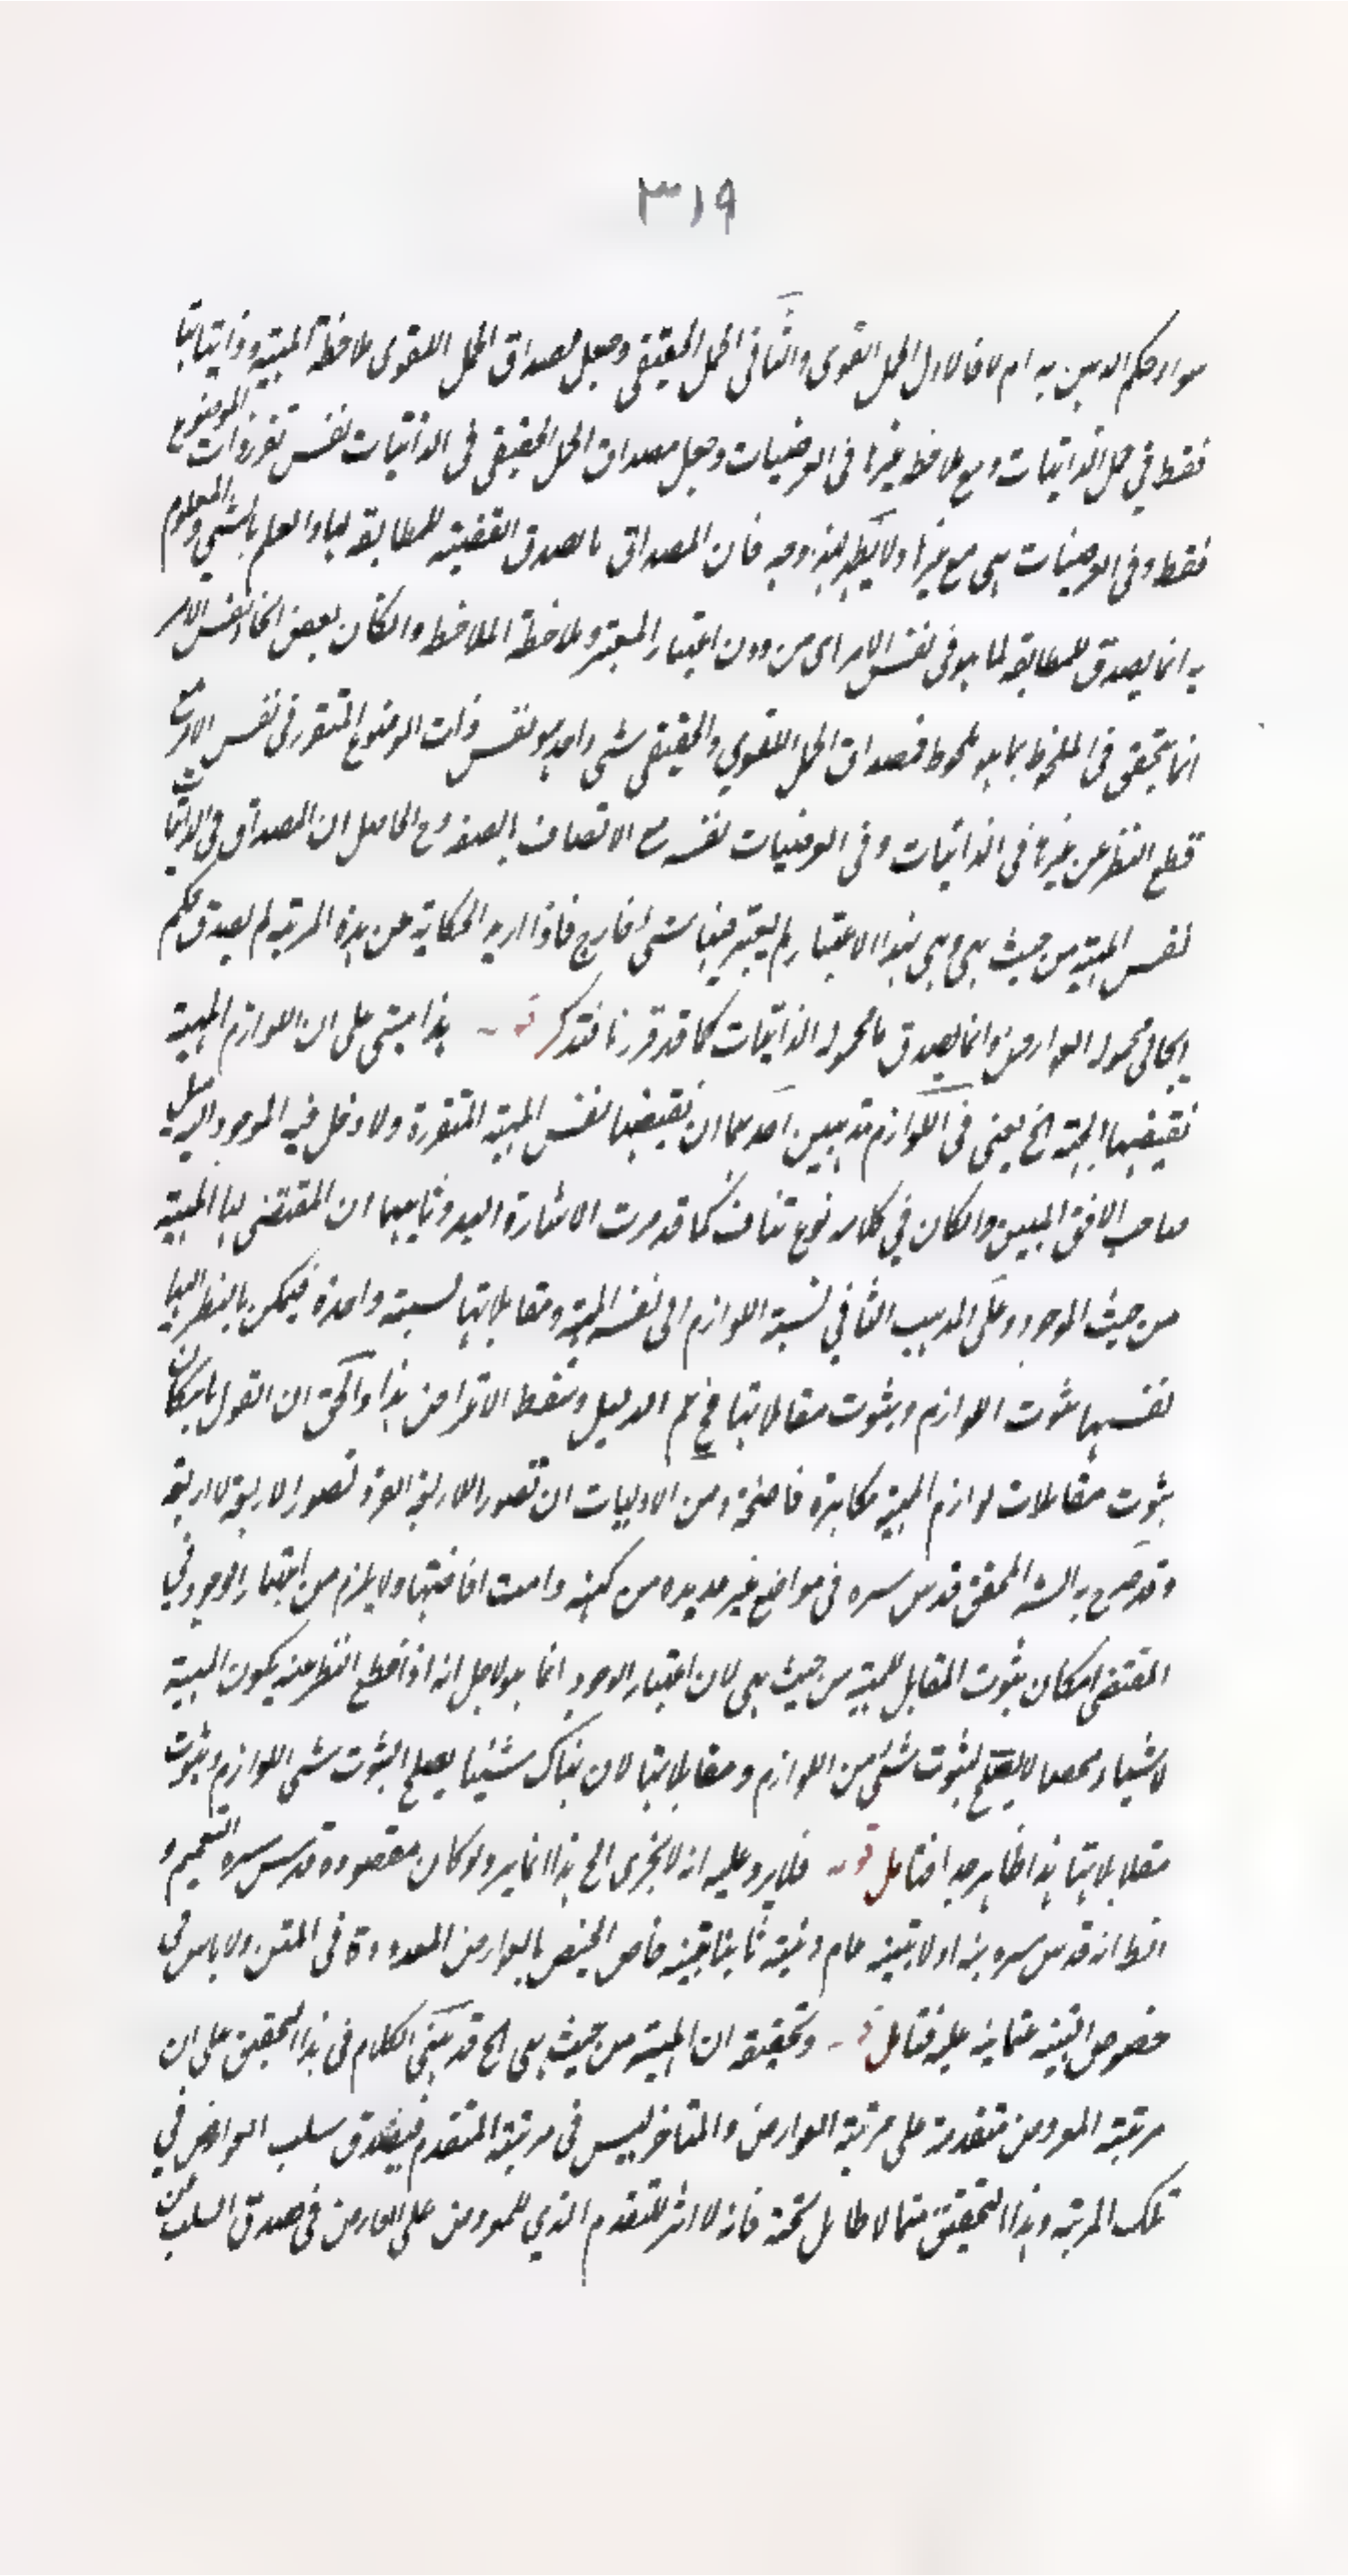 ٣١٩
سواء حكم الذهن به ام لا فالاول الحمل اللغوى والثانى الحمل الحقيقى وجعل مصداق الحمل اللغوى ملاحظة المهية وذاتياتها
فقط في حمل الذاتيات ومع ملاحظة غيرها فى العرضيات وجعل مصداق الحمل الحقيقى فى الذاتيات نفس تقرر ذات الموضوع
فقط وفى العرضيات هى مع غيرها ولا يظهر لهذا وجه فان المصداق ما يصدق القضية لمطابقة لها والعلم بالشي والمعلوم
به انما يصدق لمطابقة لما هو فى نفس الامر اى من دون اعتبار المعتبر وملاحظة الملاحظ وان كان بعض انحاء نفس الامر
انما يتحقق فى الملحوظ بما هو ملحوظ فمصداق الحمل اللغوي والحقيقى شى واحد هو نفس ذات الموضوع المتقرر فى نفس الامر مع
قطع النظر عن غيرها فى الذاتيات وفى العرضيات نفسه مع الاتصاف بالصفة وح الحاصل ان المصداق فى الذاتيات
نفس المهية من حيث هى وهى بهذا الاعتبار لم يعتبر فيها شى خارج فاذا اريد الحكاية عن هذه المرتبة لم يصدق حكم
ايجابى محموله العوارض وانما يصدق ما محموله الذاتيات كما قد قررنا فتذكر قوله هذا مبتنى على ان اللوازم المهية
نقيضها المهية الخ يعنى فى اللوازم مذهبين احدهما ان نقيضها نفس المهية المتقررة ولا دخل فيه الموجود اليه ميل
صاحب الافق المبين وان كان في كلامه نوع تناف كما قد مرت الاشارة اليه وثانيهما ان المقتضى لها المهية
من حيث الوجود وعلى المذهب الثاني نسبة اللوازم الى نفس المهية ومقابلاتها نسبة واحدة فيمكن بالنظر اليها
نفسها ثبوت اللوازم وثبوت مقابلاتها فح تم الدليل وسقط الاعتراض هذا والحق ان القول بامكان
ثبوت مقابلات لوازم المهية مكابرة فاضحة ومن الاوليات ان تصور الاربعة الفرد تصور الاربعة لا اربعة
وقد صرح به السيد المحقق قدس سره فى مواضع غير عديدة من كتبه دامت افاضتها ولا يلزم من اعتبار الوجود في
المقتضى امكان ثبوت المقابل للمهية من حيث هى لان اعتبار الوجود انما هو لاجل انه اذا قطع النظر عنه يكون المهية
لا شيئا محصلا لا يصلح لثبوت شئ من اللوازم ومقابلاتها لان هناك شيئا يصلح لثبوت شى اللوازم وثبوت
مقابلاتها هذا ظاهر جدا فتامل قوله فلا يرد عليه انه لا يجزى الخ هذا انما يرد لو كان مقصوده قدس سره التعميم و
انه قدس سره نبه اولا بتنبيه عام ونبه ثانيا بتنبيه خاص الخ يختص بالعوارض المعدودة فى المتن ولا باس فى
خصوص التنبيه عليه فتامل قوله وتحقيقه ان المهية من حيث هى الخ قد بنى الكلام فى هذا التحقيق على ان
مرتبة المعروض متقدمة على مرتبة العوارض والمتاخر ليس فى مرتبة المتقدم فيصدق سلب العوارض في
تلك المرتبة وهذا التحقيق مما لا طائل تحته فانه لا اثر للتقدم الذي للمعروض على العارض فى صدق السلب من